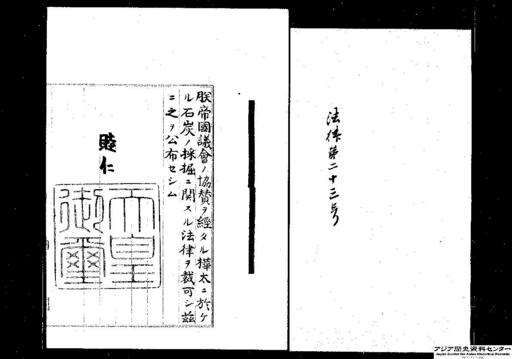 法律第二十三号
朕帝國議會ノ協賛ヲ經タル樺太ニ於ケ
ル石炭ノ採掘ニ関スル法律ヲ裁可シ茲
ニ之ヲ公布セシム
睦仁
天皇
御璽
アジア歴史資料センター
Japan Center for Asian Historical Records